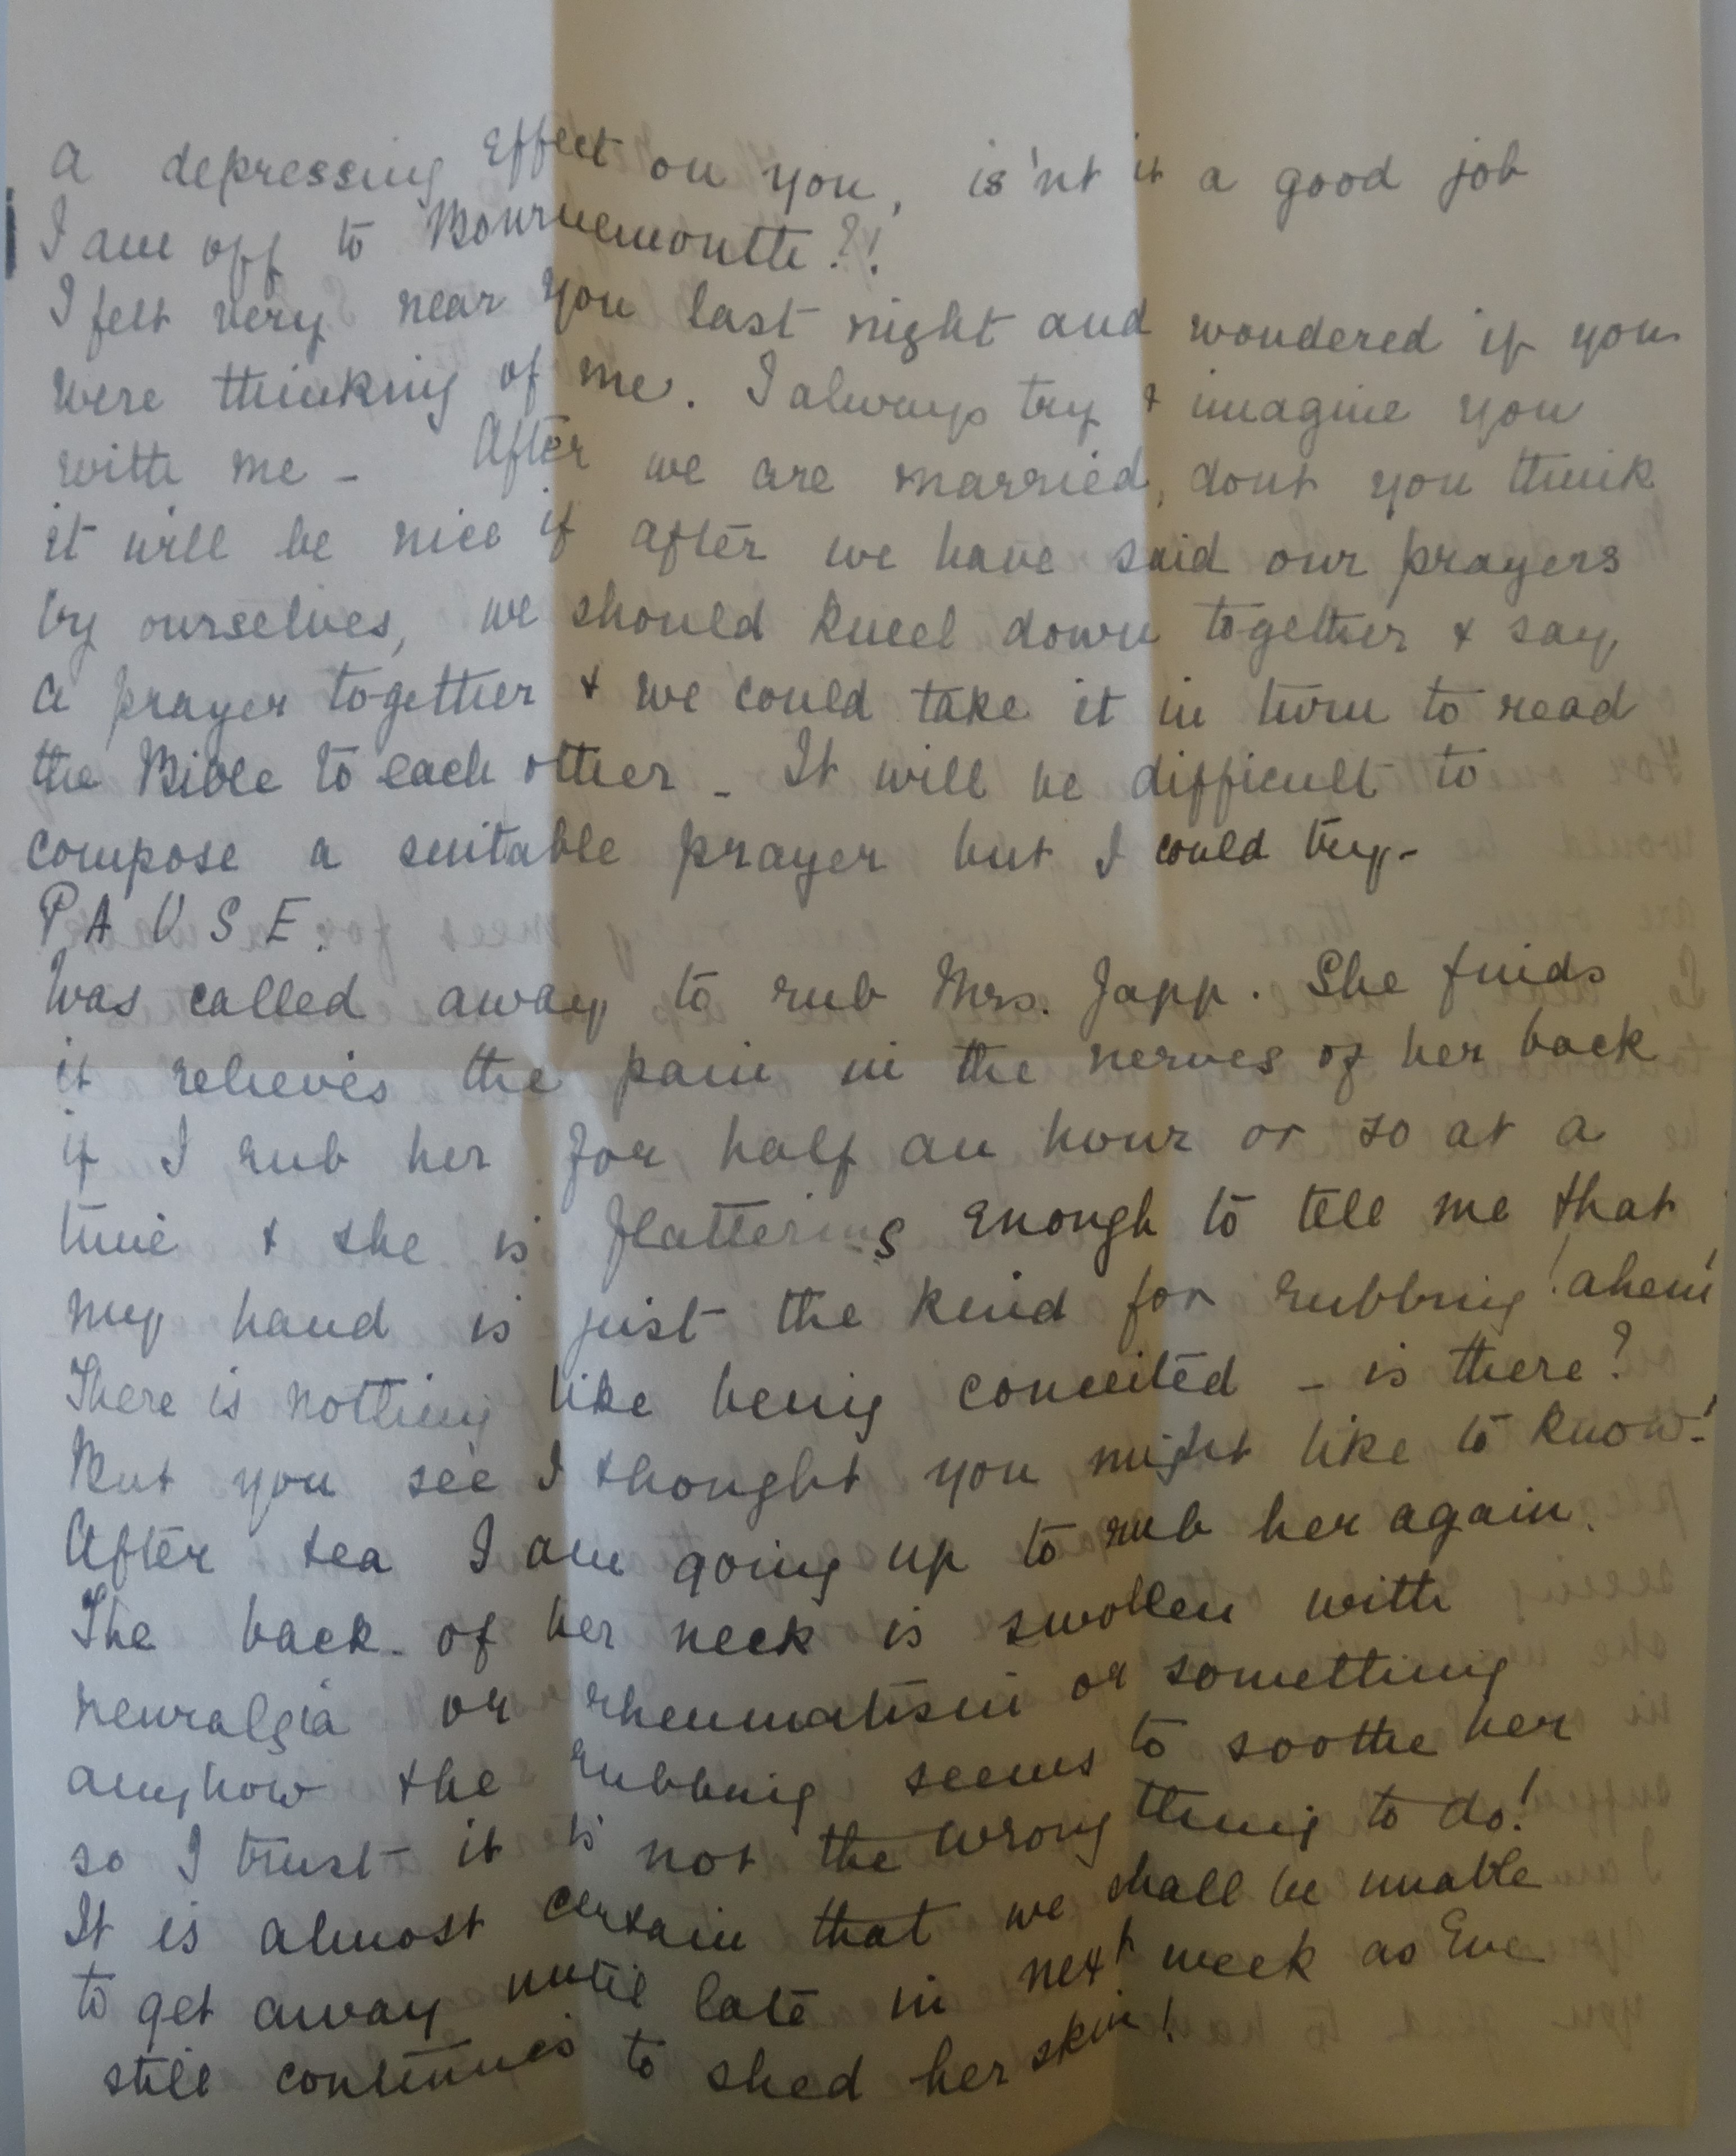 a depressing effect on you, is'nt it a good job
I am off to Bournemouth?!
I felt very near you last night and wondered if you
were thinking of me. I always try & imagine you
with me - After we are married, dont you think
it will be nice if after we have said our prayers
by ourselves, we should kneel down together & say
a prayer together & we could take it in turn to read
the Bible to each other - It will be difficult to
compose a suitable prayer but I could try -
PAUSE.
Was called away to rub Mrs. Japp. She finds
it relieves the pain in the nerves of her back
if I rub her for half an hour or so at a
time & she is flattering enough to tell me that
my hand is just the kind for rubbing! ahem!
There is nothing like being conceited - is there?
But you see I thought you might like to know!
After tea I am going up to rub her again.
The back of her neck is swollen with
neuralgia or rheumatism or something
anyhow the rubbing seems to soothe her
so I trust it is not the wrong thing to do!
It is almost certain that we shall be unable
to get away until late in next week as Eve
still continues to shed her skin!